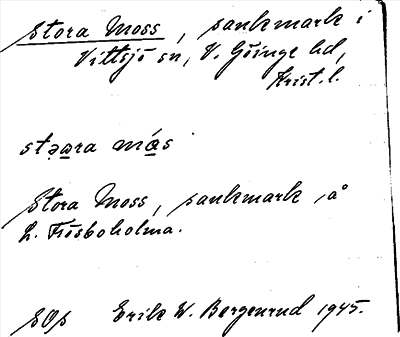 Stora Moss, sankmark i
Vittsjö sn, V. Göinge hd,
Krist. l.
stəara más
Stora Moss, sankmark, å
L. Frösboholma.
SOps Erik W. Bergenrud 1945.